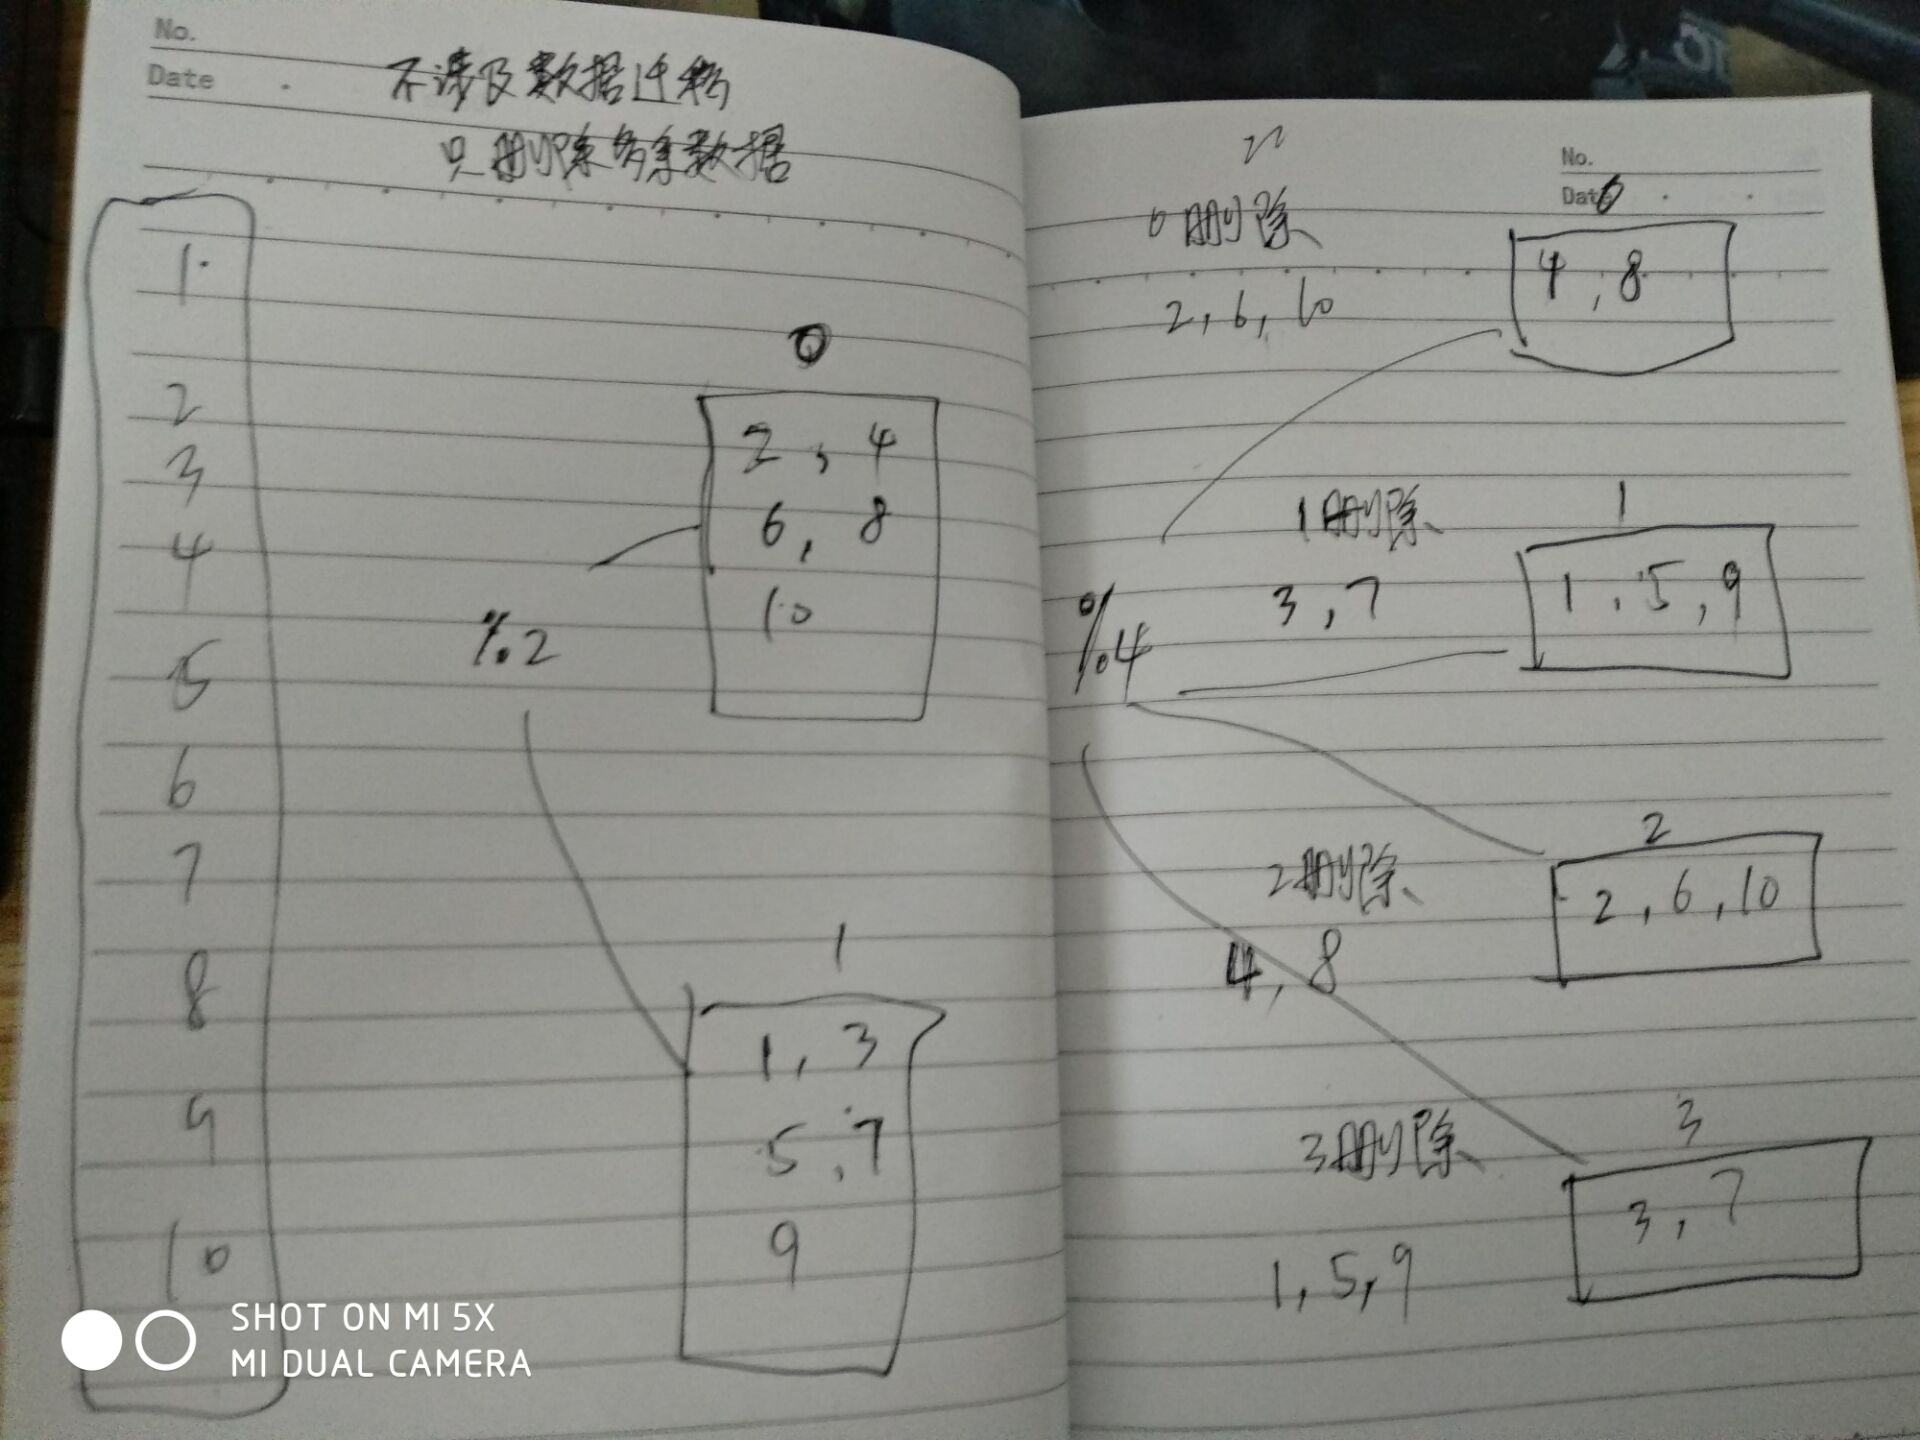 No.
Date
不涉及数据迁移
只删除多余数据
1
2
3
4
5
6
7
8
9
10
%2
0
2, 4
6, 8
10
1
1, 3
5, 7
9
No.
Date
0
0删除
2, 6, 10
4, 8
%4
1删除
3, 7
1
1, 5, 9
2删除
4, 8
2
2, 6, 10
3删除
1, 5, 9
3
3, 7
SHOT ON MI 5X
MI DUAL CAMERA